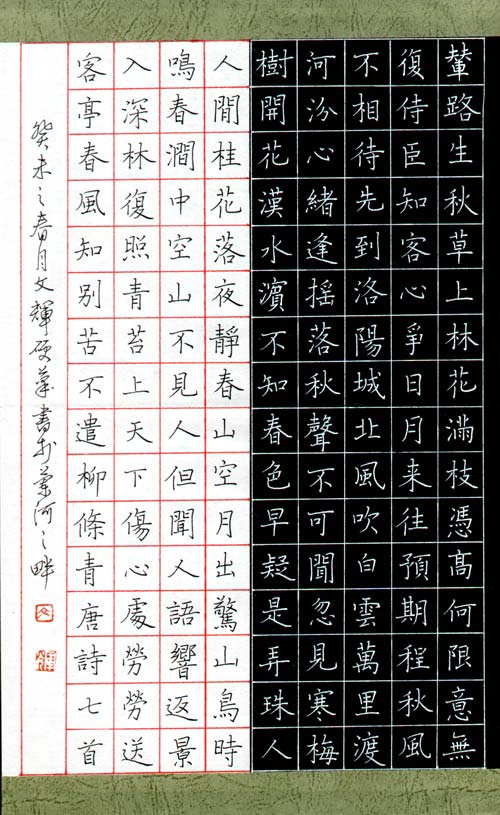 輦路生秋草上林花滿枝憑高何限意無
復侍臣知客心爭日月来往預期程秋風
不相待先到洛陽城北風吹白雲萬里渡
河汾心緒逢摇落秋聲不可聞忽見寒梅
樹開花漢水濱不知春色早疑是弄珠人
人間桂花落夜靜春山空月出驚山鳥時
鳴春澗中空山不見人但聞人語響返景
入深林復照青苔上天下傷心處勞勞送
客亭春風知别苦不遣柳條青唐詩七首
癸未之春月文輝硬筆書於河之畔
文
輝